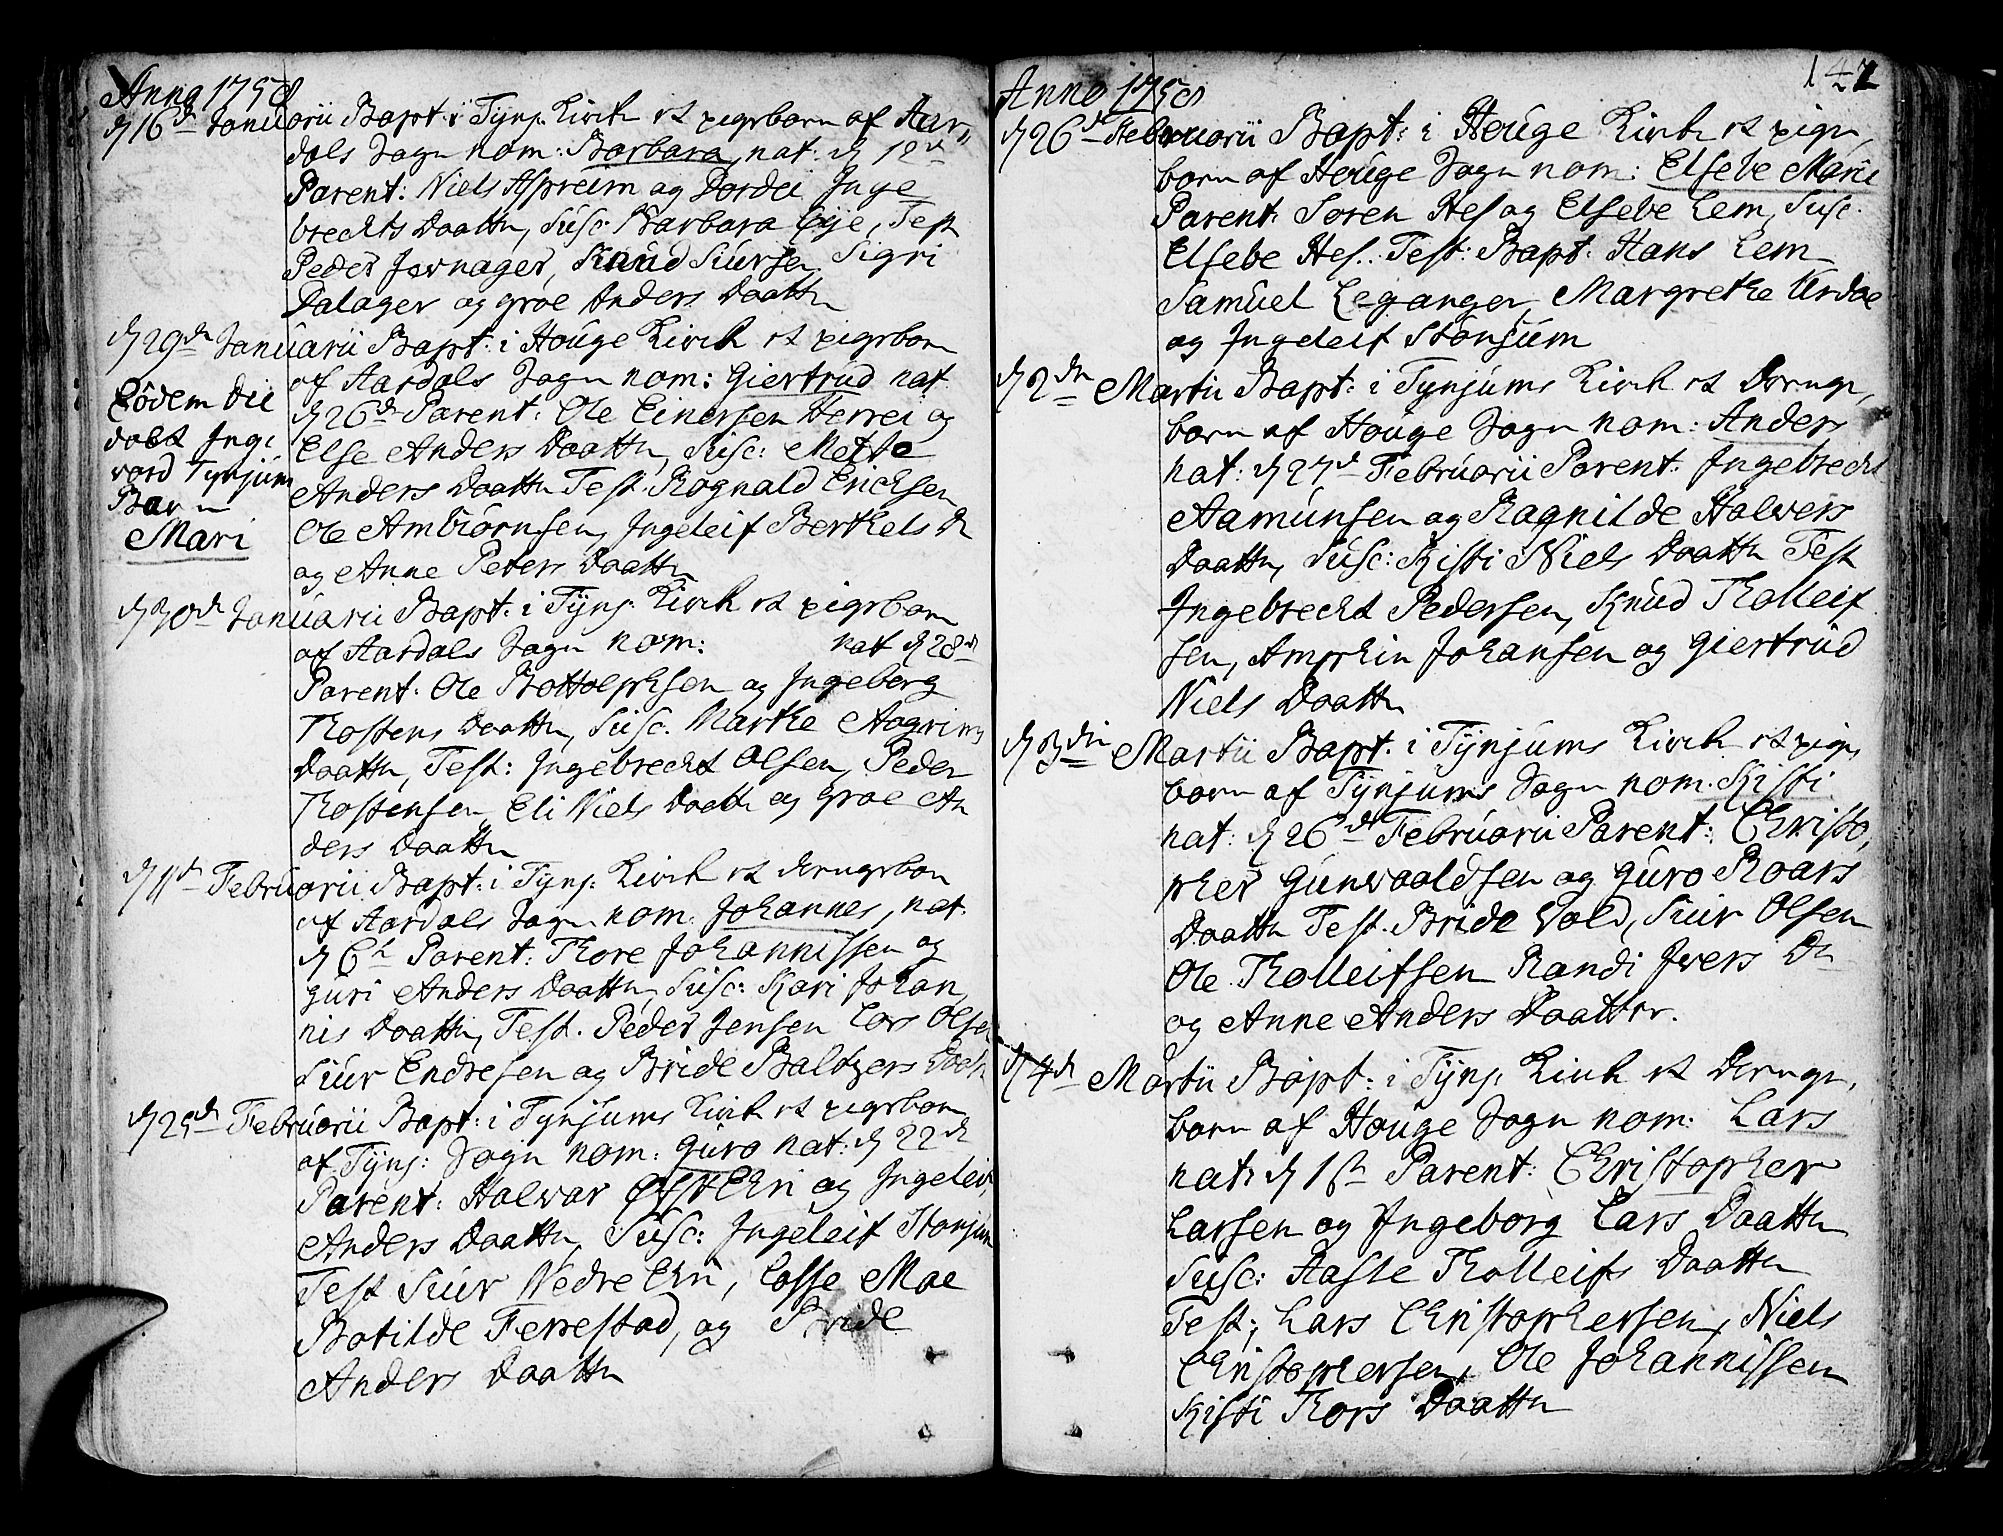 Anno 1758
d 16de Januarii Bapt: i Tÿnj: Kirch et pigebarn af Aar,
dals Sogn nom: Barbara, nat: d 12de
Parent: Niels Aspreim og Dordei Inge
brechts Daatter, Susc: Barbara Eÿe, Test
Peder Jernager, Knúd Siursen Sigri
Dalager og groe Anders Daatter
d 29de Januarii Bapt: i Houge Kirch et pigebarn
af Aardals Sogn nom: Giertrud nat
d 26de Parent: Ole Einersen Herrei og
Else Anders Daatter, Susc: Mette
Anders Daatter Test. Rognald Erichsen
Ole Ambiörnsen, Ingeleif Berthels D
og Anne Peters Daatter
Eôdem Die
döbt Inge
vord Tynjúm
Barn
Mari
d 30de Januarii Bapt: i Tÿnj: Kirch et pigebarn
af Aardals Sogn nom: nat d 28de
Parent: Ole Bottolphsen og Ingeborg
Thostens Daatter, Susc. Marthe Aagrims
Daatter, Test: Ingebrecht Olsen, Peder
Thostensen, Eli Niels Daatter og groe An
ders Daatter
d 11de Februarii Bapt: i Tÿnj: Kirch et drengebarn
af Aardals Sogn nom: Johannes, nat:
d 6te Parent: Thore Johannissen og
guri Anders Daatter, Susc: Kari Johan,
nis Daatter, Test. Peder Jensen Lars Olsen
Siur Endresen og Bride Baltzers Daatt
d 25de Februarii Bapt: i Tynjums Kirch et pigebarn
af Tÿnj: Sogn nom: guro nat: d 22de
Parent: Halvar Øfst Ehri og Ingeleif
Anders Daatter, Susc: Ingeleif Stonjum
Test Siur Nedre Ehri, Losse Moe
Botilde Ferrestad, og Bride
Anders Daatter
147
Anno 1758
d 26de Februarii Bapt: i Houge Kirch et pige,
barn af Houge Sogn nom: Elsebe Marie
Parent: Soren Hes og Elsebe Lem, Susc.
Elsebe Hes. Test: Bapt: Hans Lem
Samuel Leganger, Margrethe Urdae
og Ingeleif Stonjum
d 2den Martii Bapt: i Tynjums Kirch et drenge,
barn af Houge Sogn nom: Anders
nat: d 27de Februarii Parent: Ingebrecht
Aamunsen og Ragnilde Halvers
Daatter, Susc: Kisti Niels Daatter Test
Ingebrecht Pedersen, Knud Tholleif
sen, Amphin Johansen og giertrud
Niels Daatter
d 3die Martii Bapt: i Tÿnjums Kirch et pige,
barn af Tÿnjums Sogn nom: Kisti
nat: d 26de Februarii Parent: Christo,
pher Gunvaaldsen og guro Roars
Daatter Test. Bride Vold, Siur Olsen
Ole Tholleifsen Randi Ivers Dr
og Anne Anders Daatter.
d 4de Martii Bapt: i Tÿnj: Kirch et drenge,
barn af Houge Sogn nom: Lars
nat: d 1ste Parent: Christopher
Larsen og Ingeborg Lars Daatter
Susc: Aaste Tholleifs Daatter
Test: Lars Christophersen, Niels
Christophersen, Ole Johannissen
Kisti Thors Daatter